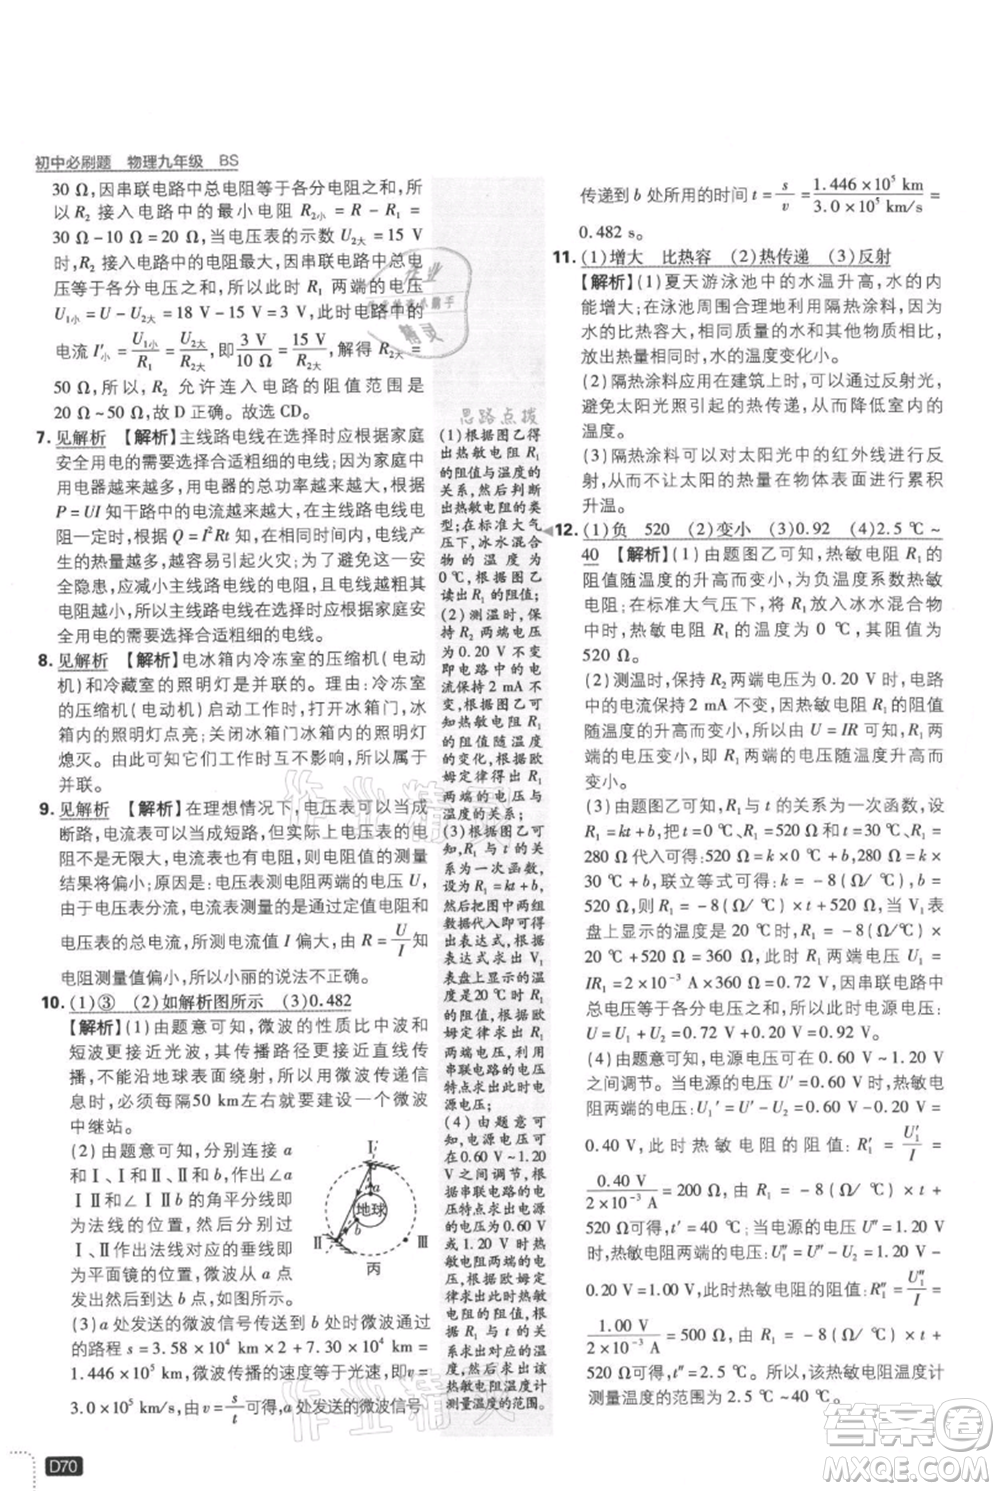 初中必刷题 物理九年级 BS
30 Ω,因串联电路中总电阻等于各分电阻之和,所
以 R₂ 接入电路中的最小电阻 R₂小 = R − R₁ =
30 Ω − 10 Ω = 20 Ω,当电压表的示数 U₂大 = 15 V
时,R₂ 接入电路中的电阻最大,因串联电路中总电
压等于各分电压之和,所以此时 R₁ 两端的电压
U₁小 = U − U₂大 = 18 V − 15 V = 3 V,此时电路中的
电流 I′小 = U₁小/R₁ = U₂大/R₂大,即 3 V/10 Ω = 15 V/R₂大,解得 R₂大 =
50 Ω,所以,R₂ 允许连入电路的阻值范围是
20 Ω ~ 50 Ω,故 D 正确。故选CD。
7. 见解析 【解析】主线路电线在选择时应根据家庭
安全用电的需要选择合适粗细的电线。因家庭中
用电器越来越多,用电器的总功率越来越大,根据
P = UI 知干路中的电流越来越大,在主线路电线电
阻一定时,根据 Q = I²Rt 知,在相同时间内,电线产
生的热量越来越多,
容易引起火灾;为了避免这一危
害,应减小主线路电线的电阻,且电线越粗其电
阻越小,所以在选择主线路电线时应根据家庭安全
用电的需要选择合适粗细的电线。
8. 见解析 【解析】电冰箱内冷冻室的压缩机(电动
机)和冷藏室的照明灯是并联的。理由:冷冻室的
压缩机(电动机)启动工作时,打开冰箱门,冰箱
内的照明灯点亮;关闭冰箱门冰箱内的照明灯
熄灭。由此可知它们工作时互不影响,所以是
并联。
9. 见解析 【解析】在理想情况下,电压表可以当成
断路,电流表可以当成短路,但实际中,电压表的电
阻不是无穷大的,会有电流,因此电阻的测量
结果将偏小;原因是:电阻两端的电压是准确的,
由于电压表分流,电流表测量的是通过定值电阻和
电压表的总电流,所测电流 I 偏大,由 R = U/I 知
电阻测量值偏小,所以小丽的说法不正确。
10. (1)③ (2)如解析图所示 (3)0.482
【解析】(1)由题意可知,微波的性质比中波和
短波更接近光波,其传播路径更接近直线传
播,不能沿地球表面绕射,所以用微波传递信
息时,必须每隔50 km左右就要建设一个微波
中继站。
(2)由题意可知,分别连接 a
和Ⅰ、Ⅰ和Ⅱ、Ⅱ和 b,作出∠a
ⅠⅡ和∠ⅠⅡb 的角平分线即
为法线的位置,然后分别过
Ⅰ、Ⅱ作出法线对应的垂线即
为平面镜的位置,微波从 a 点
发出然后到达 b 点,如图所示。
Ⅰ
地球
Ⅱ
Ⅲ
丙
(3)从 a 处发送的微波信号传送到 b 处时通过
的路程 s = 3.58 × 10⁴ km × 2 + 7.30 × 10⁴ km =
1.446 × 10⁵ km,微波传播的速度等于光速,即 v =
3.0 × 10⁵ km/s,由 v = s/t 可得,a 处发送的微波信号
思路点拨
(1)根据图乙得
出热敏电阻 R₁
的阻值与温度的
关系,然后判断
出热敏电阻的类
型;在标准大气
压下,冰水混合
物的温度为
0 ℃,根据图乙
读出 R₁ 的阻值;
(2)测温时,保
持 R₂ 两端电压
为 0.20 V 不变
即电路中的电流
保持 2 mA 不变,
根据图乙可
知热敏电阻 R₁
的阻值随温度
的变化,根据欧
姆定律得出 R₁ 两
端的电压与温
度的关系;
(3)根据图乙可
知,R₁ 与 t 的关系
为一次函数,
设为 R₁ = kt + b,
然后把图中的两组
数据代入即可得
出表达式,根据
表达式得出电压
表盘上显示的温度
是 40 ℃
(4)由题意可
知,电源电压在
0.60 V ~ 1.20 V
之间调节,根
据串联电路的电
压特点求出电源
电压为 0.60 V
或 1.20 V 时热
敏电阻两端的
电压,根据欧姆定律
求出热敏电阻
的阻值,根
据 R₁ 与 t 的关系
求出对应的温
度,然后求出该
热敏电阻温度计
测量温度的范围。
传递到 b 处所用的时间 t = s/v = 1.446 × 10⁵ km/3.0 × 10⁵ km/s =
0.482 s。
11. (1)增大 比热容 (2)热传递 (3)反射
【解析】(1)夏天游泳池中的水温升高,水的内能
增大;在泳池周围合理地利用隔热涂料,是因为
水的比热容较大,相同质量的水和其他物质相比,
放出热量相同时,水的温度变化小。
(2)隔热涂料应用在建筑上时,可以通过反射光,
避免太阳光照引起的热传递,从而降低室内的
温度。
(3)隔热涂料可以对太阳光中的红外线进行反射,
不让太阳的热量在物体表面进行累积
升温。
12. (1)负 520 (2)变小 (3)0.92 (4)2.5 ℃ ~
40 【解析】(1)由题图乙可知,热敏电阻 R₁ 的
阻值随温度的升高而变小,为负温度系数热敏
电阻;在标准大气压下,将 R₁ 放入冰水混合物
中时,热敏电阻 R₁ 的温度为 0 ℃,其阻值为
520 Ω。
(2)测温时,保持 R₂ 两端电压为 0.20 V,电路
中的电流保持 2 mA 不变,因热敏电阻 R₁ 的阻值
随温度的升高而变小,所以,由 U = IR 可知,R₁ 两
端的电压变小,故 R₁ 两端的电压随温度升高而
变小。
(3)由题图乙可知,R₁ 与 t 的关系为一次函数,设
R₁ = kt + b,把 t = 0、R₁ = 520 Ω 和 t = 30 ℃、R₁ =
280 Ω 代入可得:520 Ω = k × 0 + b,280 Ω = k ×
30 ℃ + b,联立等式可得:k = −8(Ω/℃),b =
520 Ω,则 R₁ = −8(Ω/℃) × t + 520 Ω,当 V₁ 表
盘上显示的温度是 20 ℃ 时,R₁ = −8(Ω/℃) ×
20 ℃ + 520 Ω = 360 Ω,R₁ 两端的电压:U₁ =
IR₁ = 2 × 10⁻³ A × 360 Ω = 0.72 V,因串联电路中
总电压等于各分电压之和,所以,电源的电压:
U = U₁ + U₂ = 0.72 V + 0.20 V = 0.92 V。
(4)由题意可知,电源电压可在 0.60 V ~ 1.20 V
之间调节。当电源的电压 U′ = 0.60 V 时,热敏电
阻两端的电压:U₁′ = U′ − U₂ = 0.60 V − 0.20 V =
0.40 V,此时热敏电阻的阻值:R₁′ = U₁′/I =
0.40 V/2 × 10⁻³ A = 200 Ω,由 R₁ = −8(Ω/℃) × t +
520 Ω可得,t′ = 40 ℃;当电源的电压 U″ = 1.20 V
时,热敏电阻两端的电压:U₁″ = U″ − U₂ = 1.20 V −
0.20 V = 1.00 V,此时热敏电阻的阻值:R₁″ = U₁″/I =
1.00 V/2 × 10⁻³ A = 500 Ω,由 R₁ = −8(Ω/℃) × t +
520 Ω 可得,t″ = 2.5 ℃。所以,该热敏电阻温度计
测量温度的范围为 2.5 ℃ ~ 40 ℃。
D70
作业精灵
答案圈
MXQE.COM